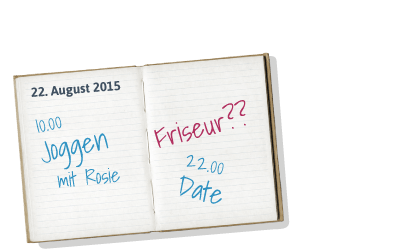 22. August 2015
10.00
Joggen
mit Rosie
Friseur??
22.00
Date